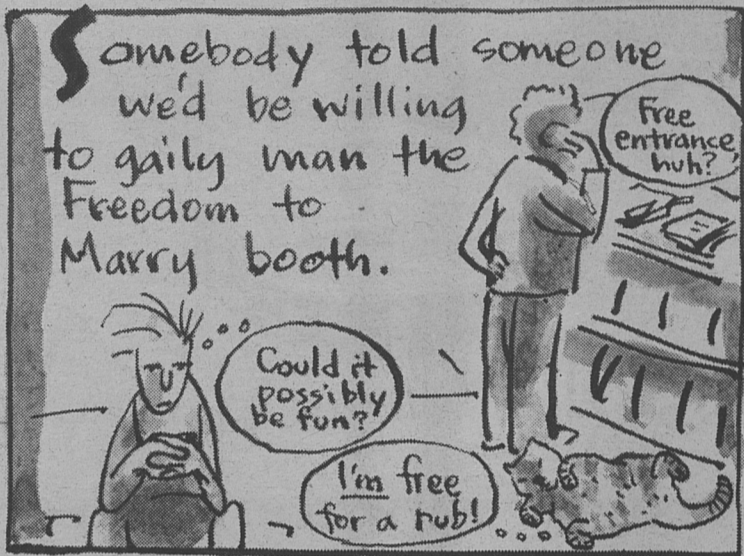 Somebody told someone
we'd be willing
to gaily man the
Freedom to
Marry booth.
Free
entrance,
huh?
Could it
possibly
be fun?
I'm free
for a rub!